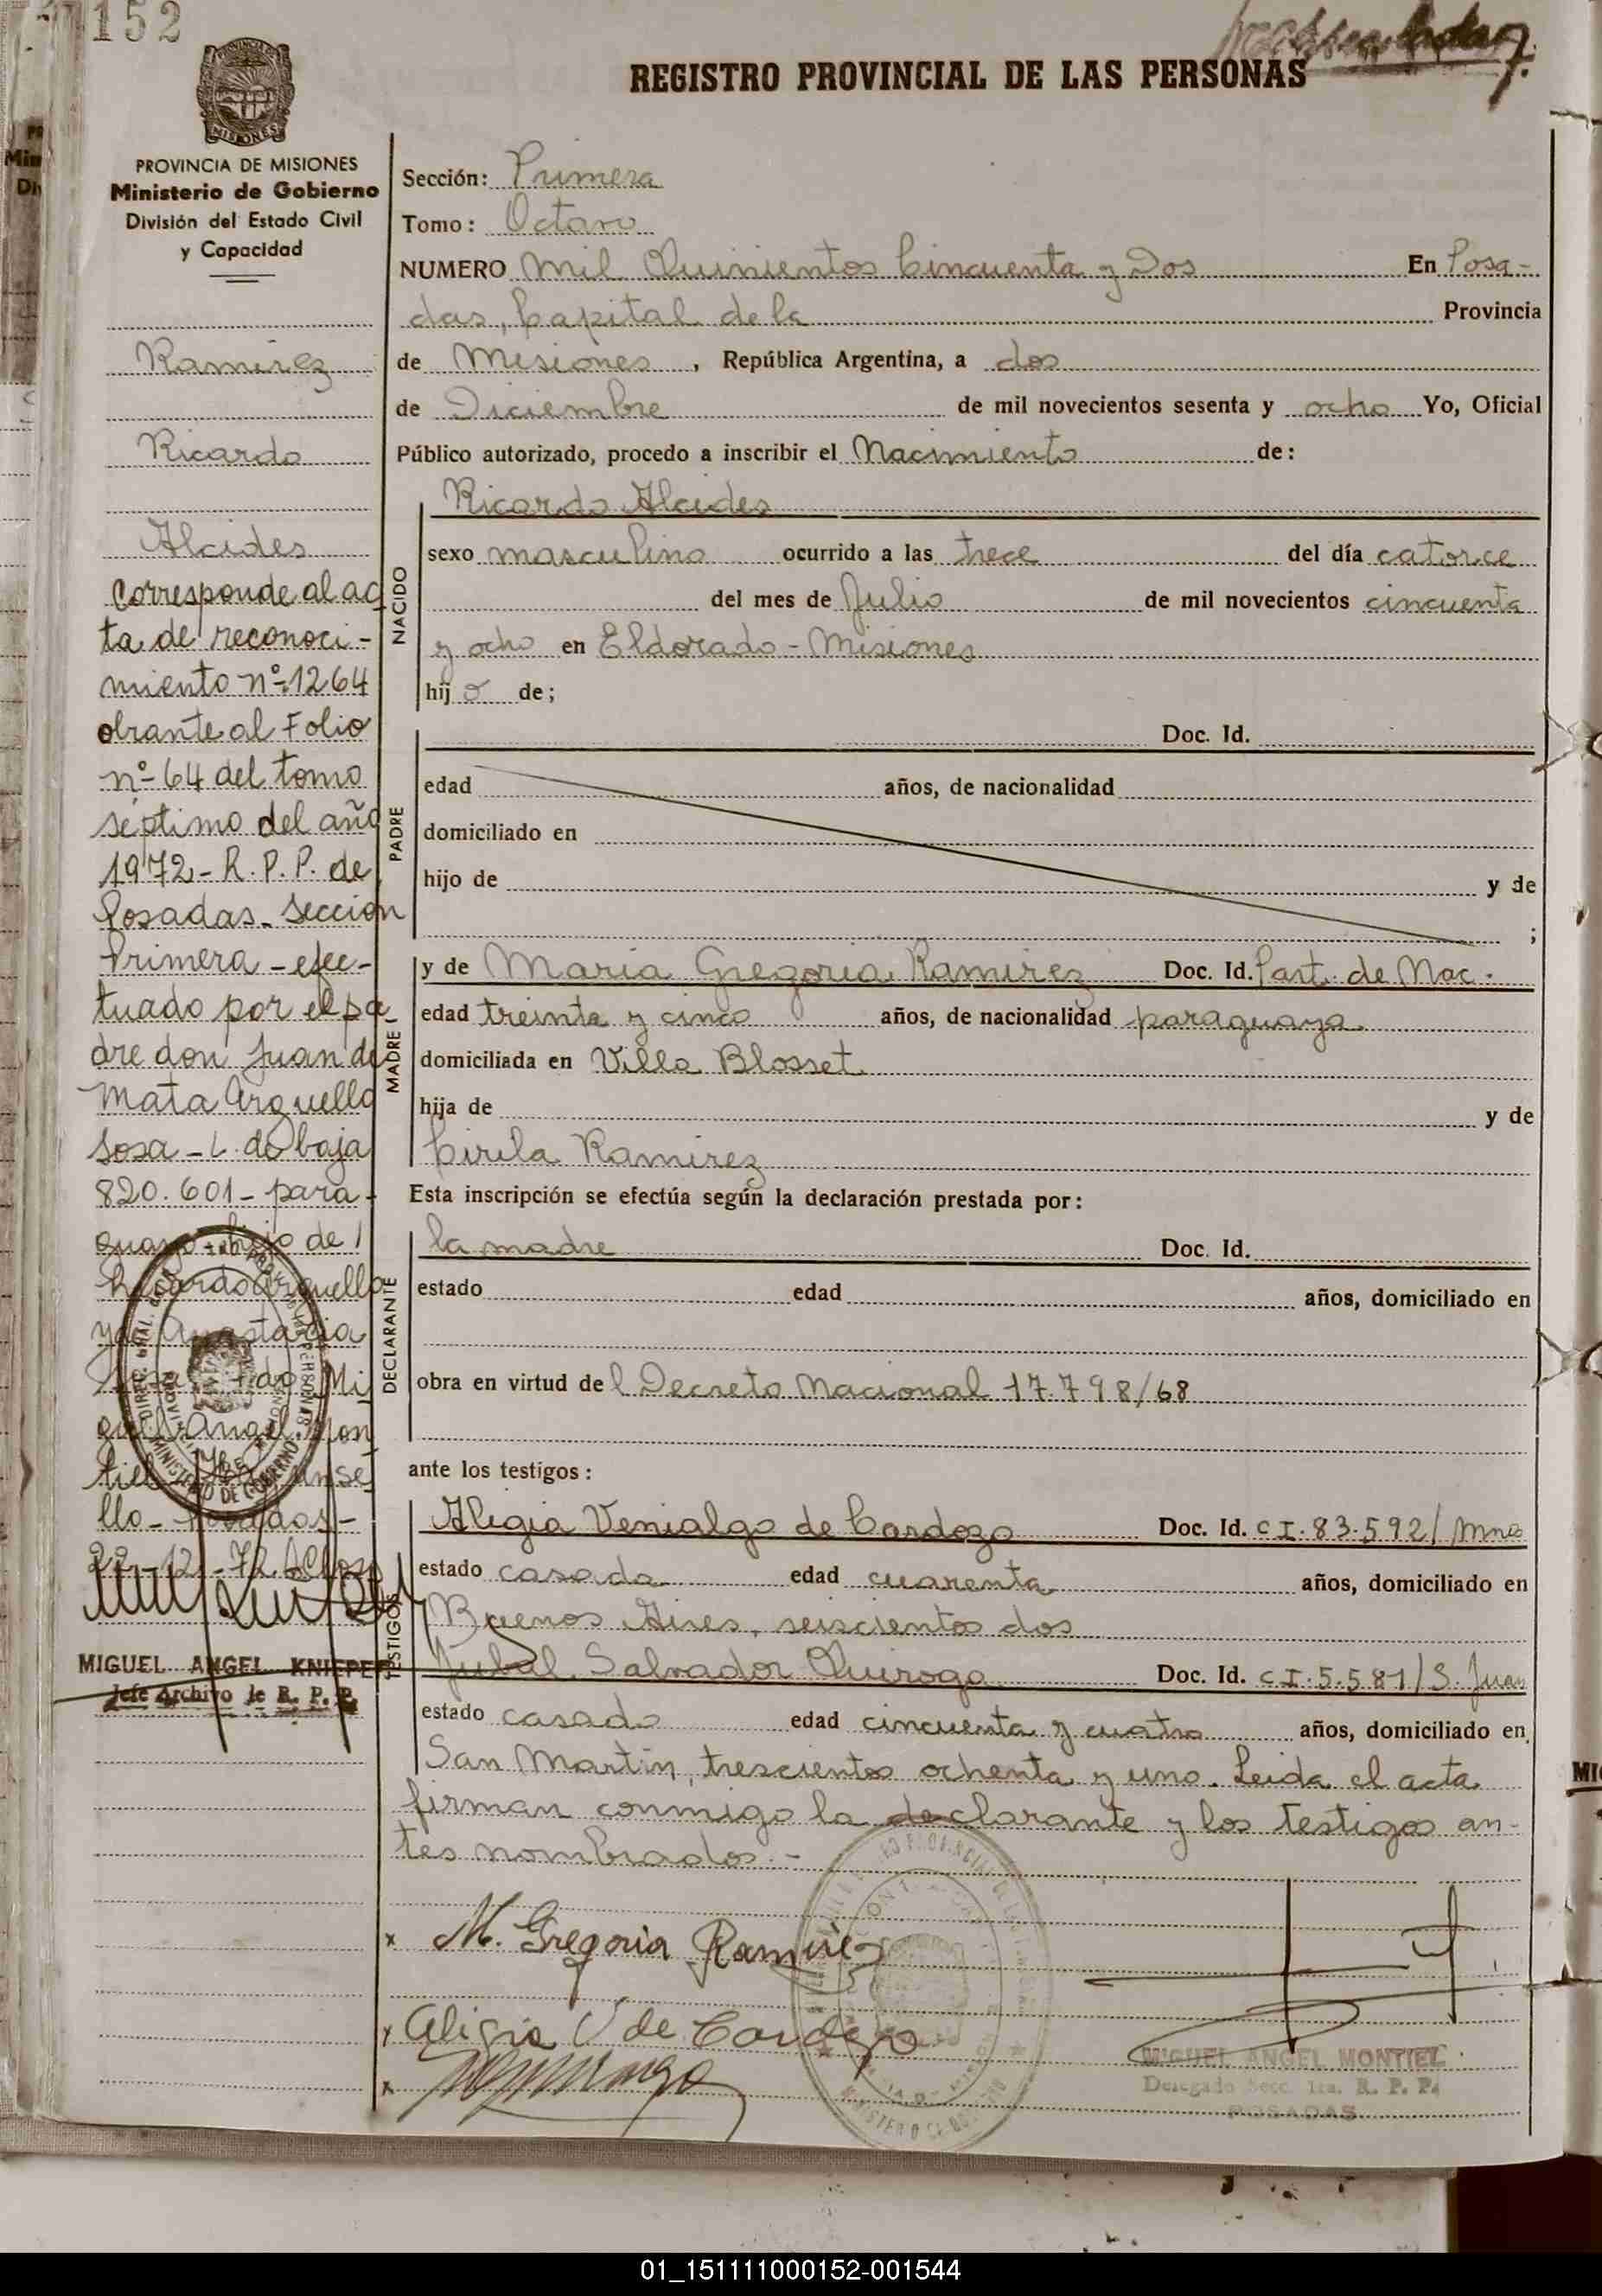 152
REGISTRO PROVINCIAL DE LAS PERSONAS
PROVINCIA DE MISIONES
Ministerio de Gobierno
División del Estado Civil
y Capacidad
Ramirez
Ricardo
Alcides
Corresponde al ac
ta de reconoci-
miento nº 1264
obrante al Folio
nº 64 del tomo
séptimo del año
1972 - R. P. P. de
Posadas - Sección
Primera - efec-
tuado por el pa-
dre don Juan de
Mata Arguello
Sosa - L. de baja
820.601 - para-
guayo - hijo de
Ricardo Arguello
y de Anastacia
Sosa Fdo. Mi
guel Angel Mon
tiel
llo - Posadas -
22-12-72
MIGUEL ANGEL KNIEPER
Jefe Archivo de R. P. P.
Sección: Primera
Tomo: Octavo
NUMERO Mil Quinientos Cincuenta y Dos En Posa-
das, Capital de la Provincia
de Misiones, República Argentina, a dos
de Diciembre de mil novecientos sesenta y ocho Yo, Oficial
Público autorizado, procedo a inscribir el Nacimiento de:
NACIDO
Ricardo Alcides
sexo masculino ocurrido a las trece del día catorce
del mes de Julio de mil novecientos cincuenta
y ocho en Eldorado - Misiones
hijo de;
PADRE
Doc. Id.
edad años, de nacionalidad
domiciliado en
hijo de y de
;
MADRE
y de Maria Gregoria Ramirez Doc. Id. Part. de Nac.
edad treinta y cinco años, de nacionalidad paraguaya
domiciliada en Villa Blosset
hija de y de
Cirila Ramirez
Esta inscripción se efectúa según la declaración prestada por:
DECLARANTE
la madre Doc. Id.
estado edad años, domiciliado en
obra en virtud del Decreto Nacional 17.798/68
ante los testigos:
TESTIGOS
Aligia Venialgo de Cardozo Doc. Id. C.I. 83.592/Mnes
estado casada edad cuarenta años, domiciliado en
Buenos Aires, seiscientos dos
Jubal Salvador Quiroga Doc. Id. C.I. 5.581/S. Juan
estado casado edad cincuenta y cuatro años, domiciliado en
San Martin, trescientos ochenta y uno. Leida el acta
firman conmigo la declarante y los testigos an-
tes nombrados.-
x M. Gregoria Ramirez
x Aligia V de Cardozo
x
MIGUEL ANGEL MONTIEL
Delegado Secc. 1ra. R. P. P.
POSADAS
01_151111000152-001544